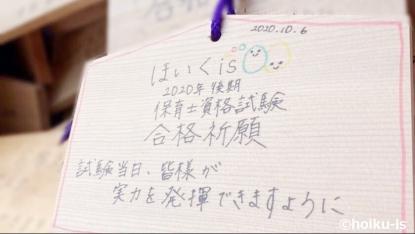 2020.10.6
ほいくis
2020年後期
保育士資格試験
合格祈願
試験当日、皆様が
実力を発揮できますように
©hoiku-is